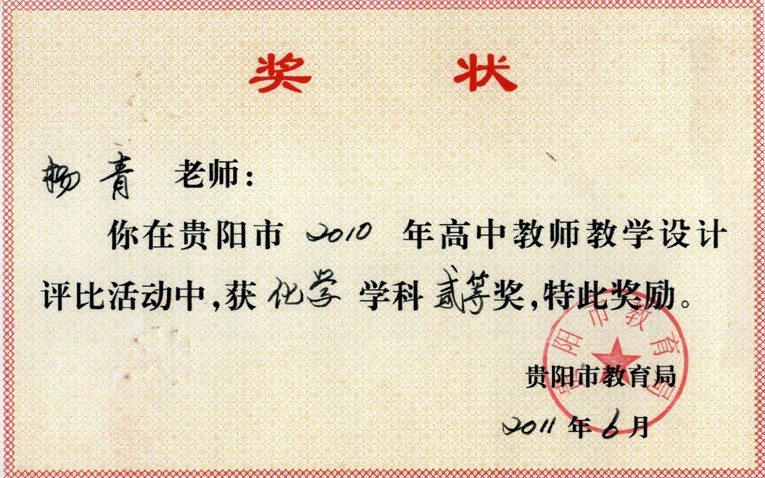 奖状
杨青 老师:
你在贵阳市 2010 年高中教师教学设计
评比活动中,获 化学 学科 贰等奖,特此奖励。
贵阳市教育局
贵阳市教育局
2011年6月